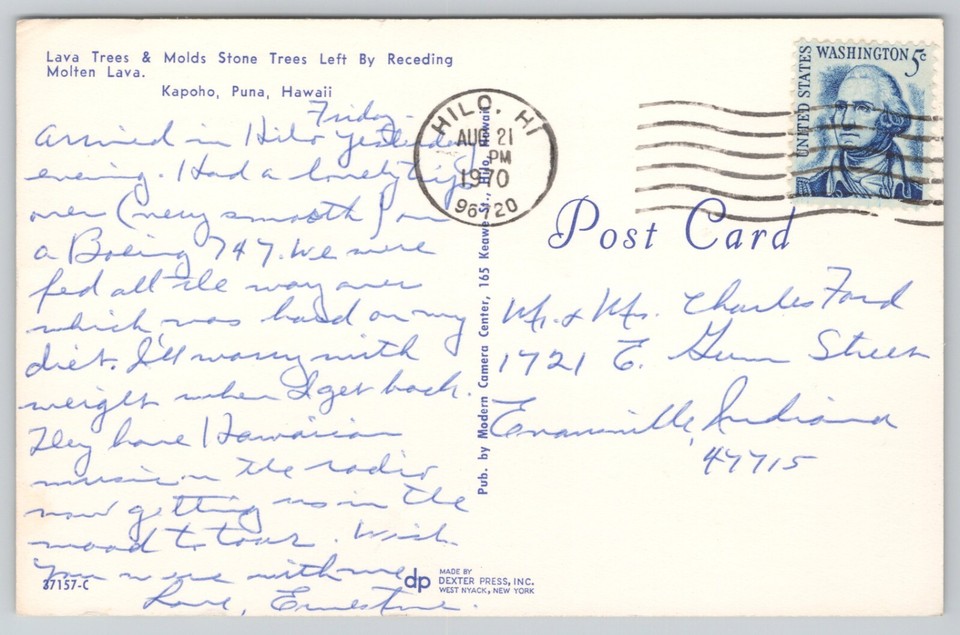 Lava Trees & Molds Stone Trees Left By Receding
Molten Lava.
Kapoho, Puna, Hawaii
Friday.
Arrived in Hilo yesterday
evening. Had a lovely trip
over (very smooth) on
a Boeing 747. We were
fed all the way over
which was hard on my
diet. I'll worry with
weight when I get back.
They have Hawaiian
music on the radio
now getting us in the
mood to tour. Wish
you were with me
Love, Ernestine.
37157-C
Pub. by Modern Camera Center, 165 Keawe St., Hilo, Hawaii
HILO, HI
AUG 21
PM
1970
96720
UNITED STATES
WASHINGTON 5c
Post Card
Mr. & Mrs. Charles Ford
1721 E. Gum Street
Evansville, Indiana
47715
dp
MADE BY
DEXTER PRESS, INC.
WEST NYACK, NEW YORK